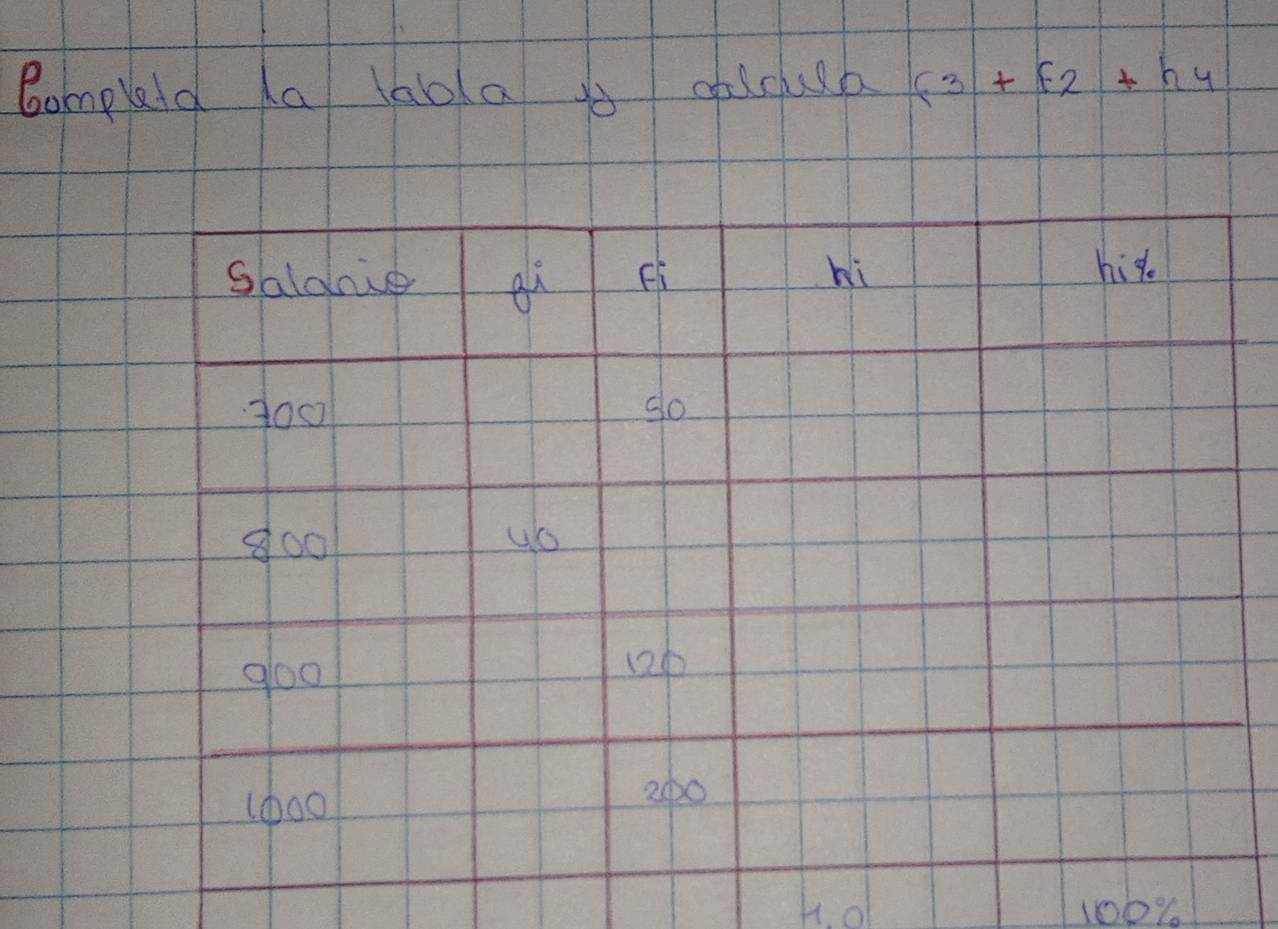 Completa la tabla y calcula f3 + F2 + h4
Salario fi Fi hi hi%
700 50
800 40
900 120
1000 200
1.0 100%